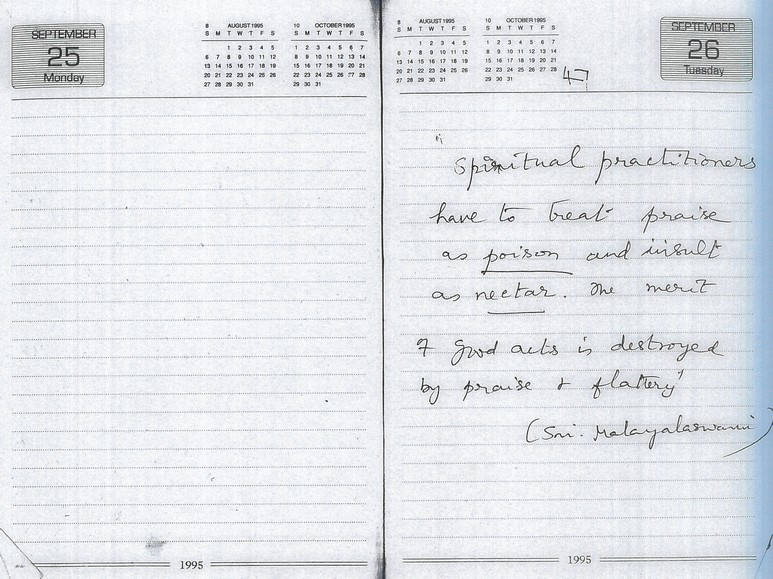 SEPTEMBER
25
Monday
8 AUGUST 1995
S M T W T F S
1 2 3 4 5
6 7 8 9 10 11 12
13 14 15 16 17 18 19
20 21 22 23 24 25 26
27 28 29 30 31
10 OCTOBER 1995
S M T W T F S
1 2 3 4 5 6 7
8 9 10 11 12 13 14
15 16 17 18 19 20 21
22 23 24 25 26 27 28
29 30 31
1995
8 AUGUST 1995
S M T W T F S
1 2 3 4 5
6 7 8 9 10 11 12
13 14 15 16 17 18 19
20 21 22 23 24 25 26
27 28 29 30 31
10 OCTOBER 1995
S M T W T F S
1 2 3 4 5 6 7
8 9 10 11 12 13 14
15 16 17 18 19 20 21
22 23 24 25 26 27 28
29 30 31
SEPTEMBER
26
Tuesday
47
"
Spiritual practitioners
have to treat praise
as poison and insult
as nectar. The merit
of good acts is destroyed
by praise & flattery"
(Sri. Malayalaswami)
1995